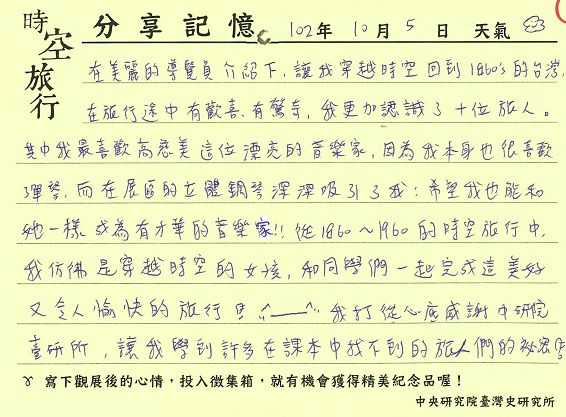 時空旅行
分享記憶 102年10月5日 天氣
在美麗的導覽員介紹下，讓我穿越時空回到1860's的台灣，
在旅行途中有歡喜、有驚奇，我更加認識了十位旅人。
其中我最喜歡高慈美這位漂亮的音樂家，因為我本身也很喜歡
彈琴，而在展區的立體鋼琴深深吸引了我；希望我也能和
她一樣成為有才華的音樂家!! 從1860～1960的時空旅行中，
我彷彿是穿越時空的女孩，和同學們一起完成這美好
又令人愉快的旅行!! ^___^ 我打從心底感謝中研院
臺研所，讓我學到許多在課本中找不到的旅人們的秘密
寫下觀展後的心情，投入徵集箱，就有機會獲得精美紀念品喔！
中央研究院臺灣史研究所